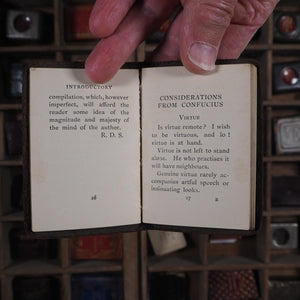 INTRODUCTORY
compilation, which, however
imperfect, will afford the
reader some idea of the
magnitude and majesty of
the mind of the author.
R. D. S.
16
CONSIDERATIONS
FROM CONFUCIUS
VIRTUE
Is virtue remote? I wish
to be virtuous, and lo!
virtue is at hand.
Virtue is not left to stand
alone. He who practises it
will have neighbours.
Genuine virtue rarely ac-
companies artful speech or
insinuating looks.
17
2